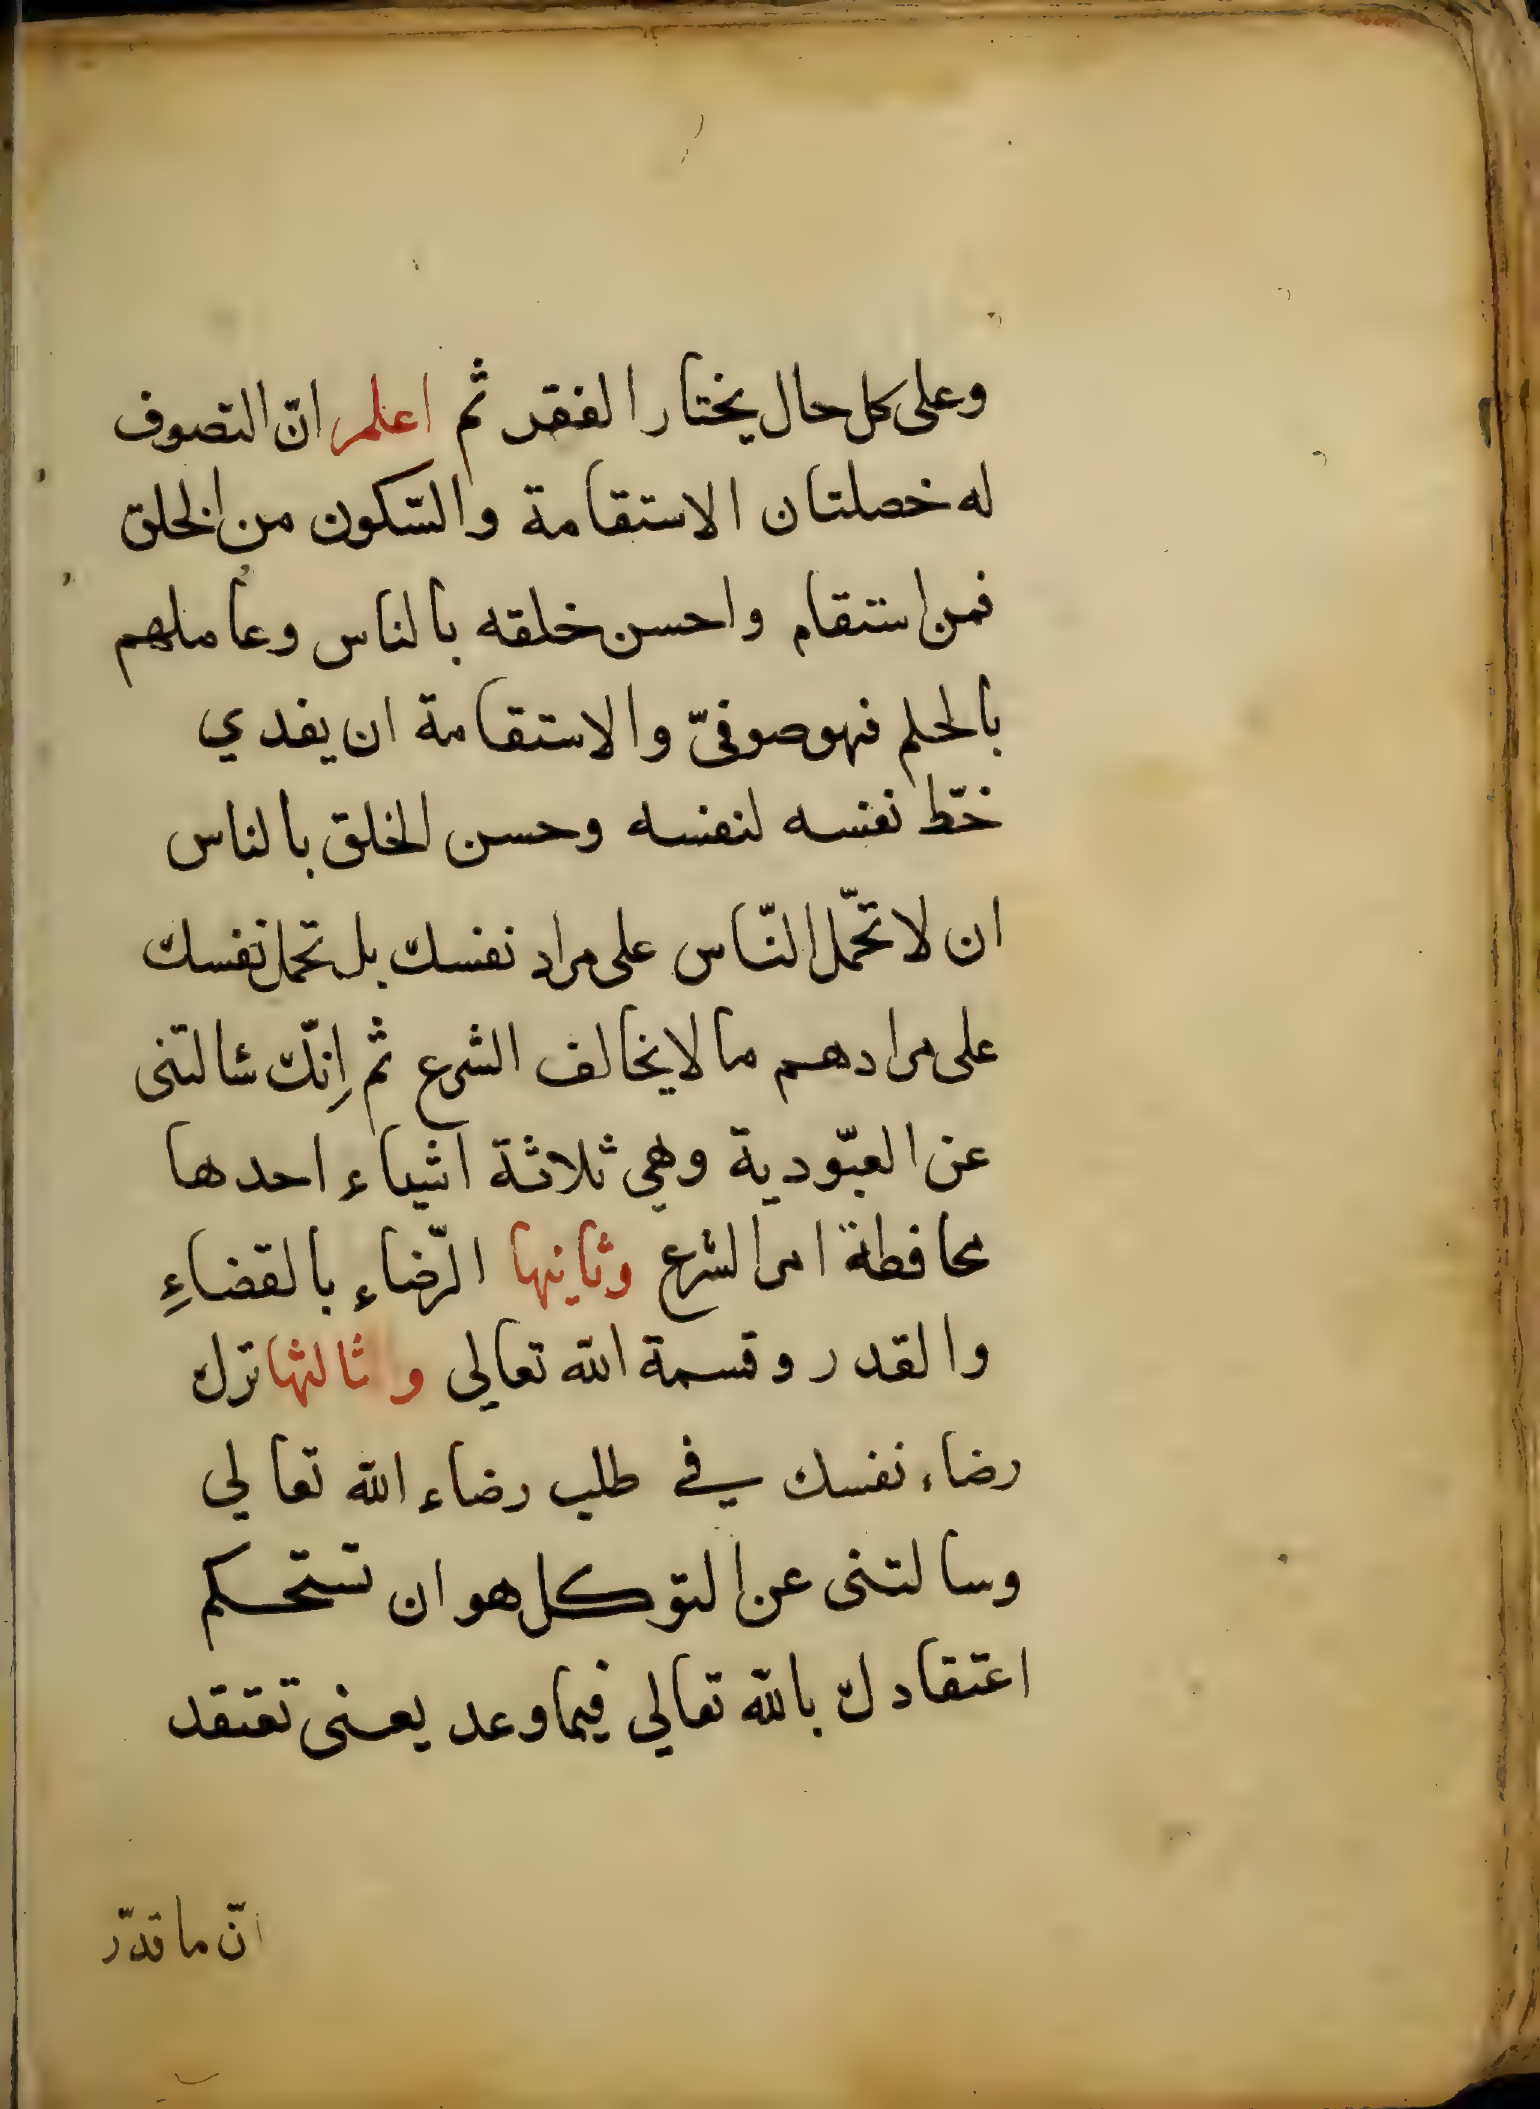 وعلى كل حال يختار الفقر ثم اعلم انّ التصوف
له خصلتان الاستقامة والسّكون من الخلق
فمن استقام واحسن خلقه بالناس وعاملهم
بالحلم فهو صوفيّ والاستقامة ان يفدي
خطّ نفسه لنفسه وحسن الخلق بالناس
ان لا تحمّل النّاس على مراد نفسك بل تحمل نفسك
على مرادهم ما لا يخالف الشرع ثم إنّك سٔالتنى
عن العبّودية وهي ثلاثة اشياء احدها
محافطة امر الشرع وثانيها الرّضاء بالقضاءِ
والقدر وقسمة الله تعالى وثالثها ترك
رضاء نفسك في طلب رضاء الله تعالي
وسالتنى عن التوكل هو ان تستحكم
اعتقادك بالله تعالي فيما وعد يعنى تعتقد
انّ ما قدّر